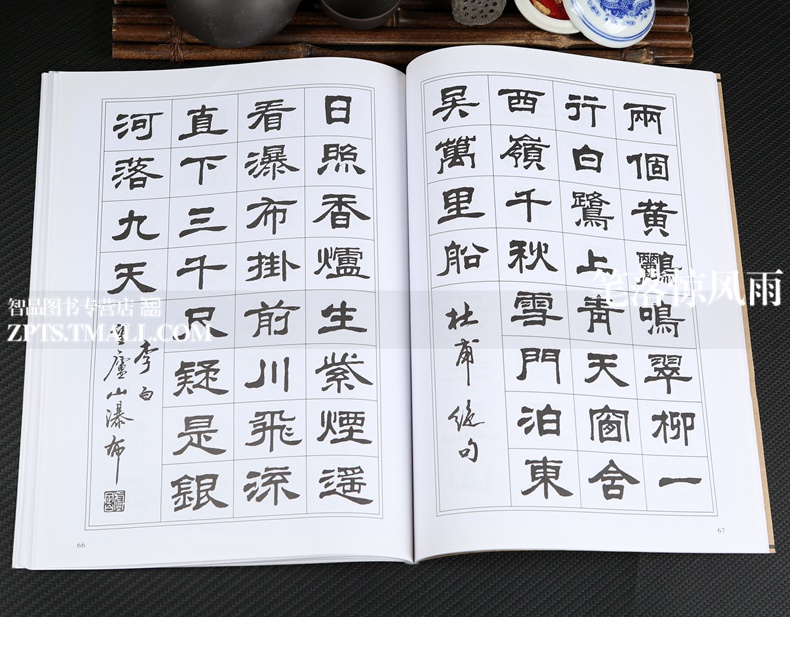 兩個黃鸝鳴翠柳一
行白鷺上青天窗含
西嶺千秋雪門泊東
吳萬里船
杜甫 絕句
67
日照香爐生紫煙遥
看瀑布掛前川飛流
直下三千尺疑是銀
河落九天
李白
望廬山瀑布
66
笔落惊风雨
智品图书专营店
ZPTS.TMALL.COM